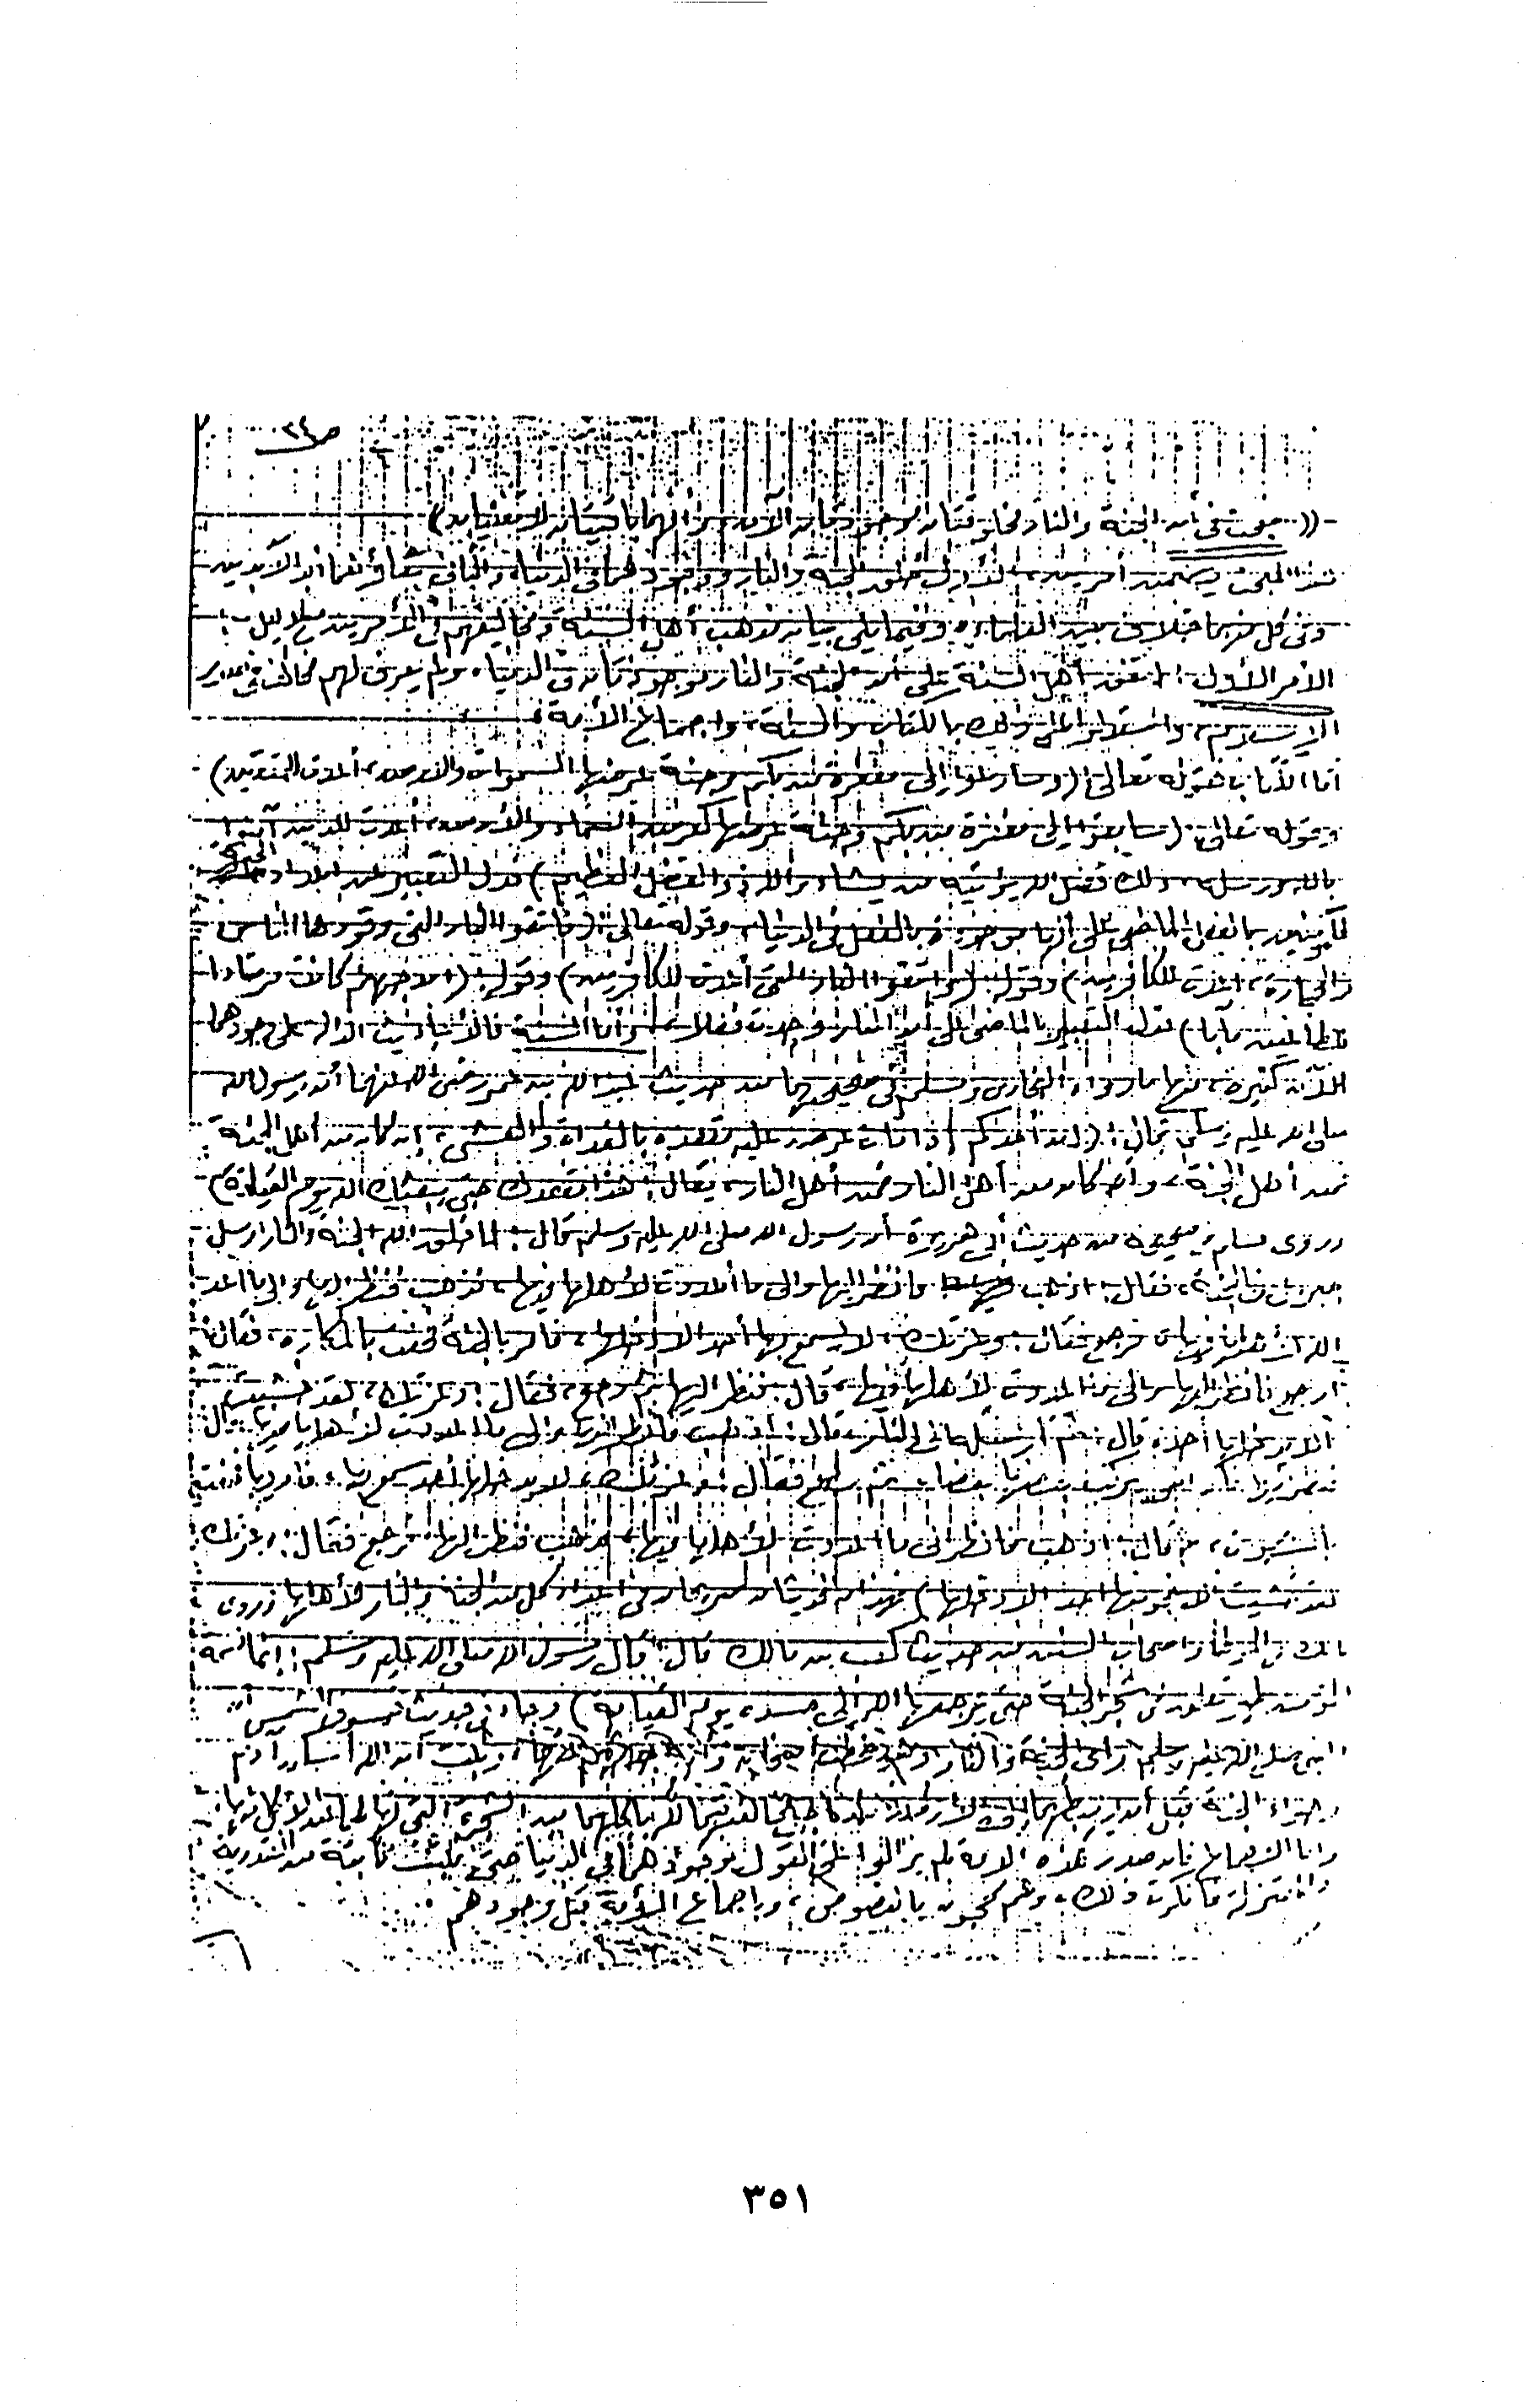 ص ٢٤
- ((مبحث في أن الجنة والنار مخلوقتان موجودتان الآن وأنهما باقيتان لا تفنيان))
هذا المبحث يتضمن أمرين، الأول خلق الجنة والنار ووجودهما في الدنيا، والثاني بقاؤهما أبد الآبدين
وفي كل منهما خلاف بين العلماء، وفيما يلي بيان مذهب أهل السنة ومخالفيهم في الأمرين
الأمر الأول: اتفق أهل السنة على أن الجنة والنار موجودتان في الدنيا، ولم يعرف لهم مخالف في
واستدلوا على ذلك بالكتاب والسنة، وإجماع الأمة،
أما الكتاب فقوله تعالى (وسارعوا إلى مغفرة من ربكم وجنة عرضها السموات والأرض، أعدت للمتقين)
وقوله تعالى (سابقوا إلى مغفرة من ربكم وجنة عرضها كعرض السماء والأرض، أعدت للذين آمنوا
بالله ورسله، ذلك فضل الله يؤتيه من يشاء والله ذو الفضل العظيم) فدل التعبير عن إعداد الجنة
بالفعل الماضي على أنها موجودة بالفعل في الدنيا، وقوله تعالى (فاتقوا النار التي وقودها الناس
والحجارة، أعدت للكافرين) وقوله (واتقوا النار التي أعدت للكافرين) وقوله (إن جهنم كانت مرصادا
للطاغين مآبا) فدل التعبير بالماضي على أن النار وجدت فعلا، وأما السنة فالأحاديث الدالة على وجودهما
الآن كثيرة، منها ما رواه البخاري ومسلم في صحيحيهما من حديث عبد الله بن عمر رضي الله عنهما أن رسول الله
صلى الله عليه وسلم قال: (إن أحدكم إذا مات عرض عليه مقعده بالغداة والعشي، إن كان من أهل الجنة
فمن أهل الجنة، وإن كان من أهل النار فمن أهل النار، يقال: هذا مقعدك حتى يبعثك الله يوم القيامة)
وروى مسلم في صحيحه من حديث أبي هريرة أن رسول الله صلى الله عليه وسلم قال: لما خلق الله الجنة والنار أرسل
جبريل إلى الجنة، فقال: اذهب فانظر إليها وإلى ما أعددت لأهلها فيها، فذهب فنظر إليها وإلى ما أعد
الله لأهلها فيها، فرجع فقال: وعزتك، لا يسمع بها أحد إلا دخلها، فأمر بالجنة فحفت بالمكاره، فقال:
ارجع فانظر إليها وإلى ما أعددت لأهلها فيها، قال فنظر إليها ثم رجع، فقال: وعزتك، لقد خشيت
ألا يدخلها أحد، قال: ثم أرسله إلى النار، قال: اذهب فانظر إليها وإلى ما أعددت لأهلها فيها، قال
فنظر إليها فإذا هي يركب بعضها بعضا، ثم رجع فقال: وعزتك، لا يدخلها أحد سمع بها، فأمر بها فحفت
بالشهوات، ثم قال: اذهب فانظر إلى ما أعددت لأهلها فيها، فذهب فنظر إليها فرجع فقال: وعزتك
لقد خشيت ألا ينجو منها أحد إلا دخلها) فهذان الحديثان صريحان في إعداد كل من الجنة والنار لأهلها، وروى
مالك في الموطأ وأصحاب السنن من حديث كعب بن مالك قال: قال رسول الله صلى الله عليه وسلم: إنما نسمة
المؤمن طير تعلق في شجر الجنة حتى يرجعها الله إلى جسده يوم القيامة) وجاء في حديث خسوف الشمس أن
النبي صلى الله عليه وسلم رأى الجنة والنار وهو يخطب أصحابه
وأما الإجماع فإن صدر هذه الأمة لم يزالوا على القول بوجودهما في الدنيا حتى نبتت نابتة من القدرية
والمعتزلة فأنكرت ذلك، وهم محجوجون بالنصوص، وبإجماع الأمة قبل وجودهم
٣٥١